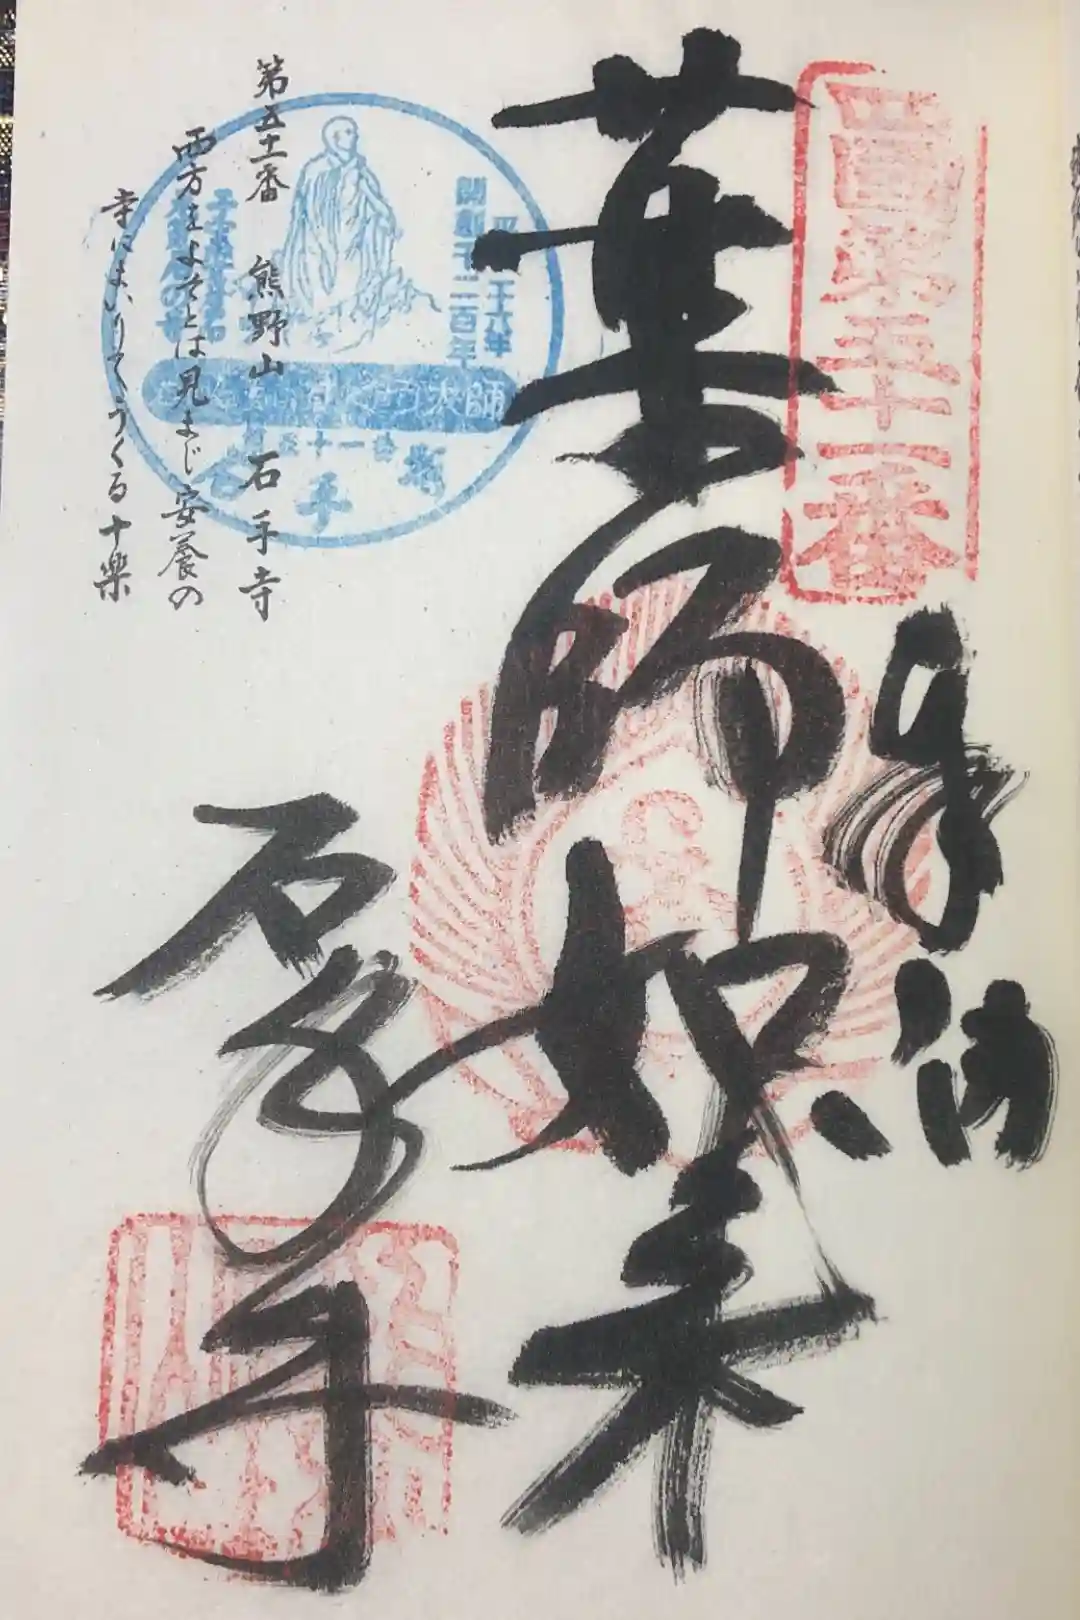 奉納
四國第五十一番
薬師如来
石手寺
平成二十六年
開創千二百年
五十一番
石手寺
第五十一番　熊野山　石手寺
西方をよそとは見まじ安養の
寺にまいりてうくる十楽